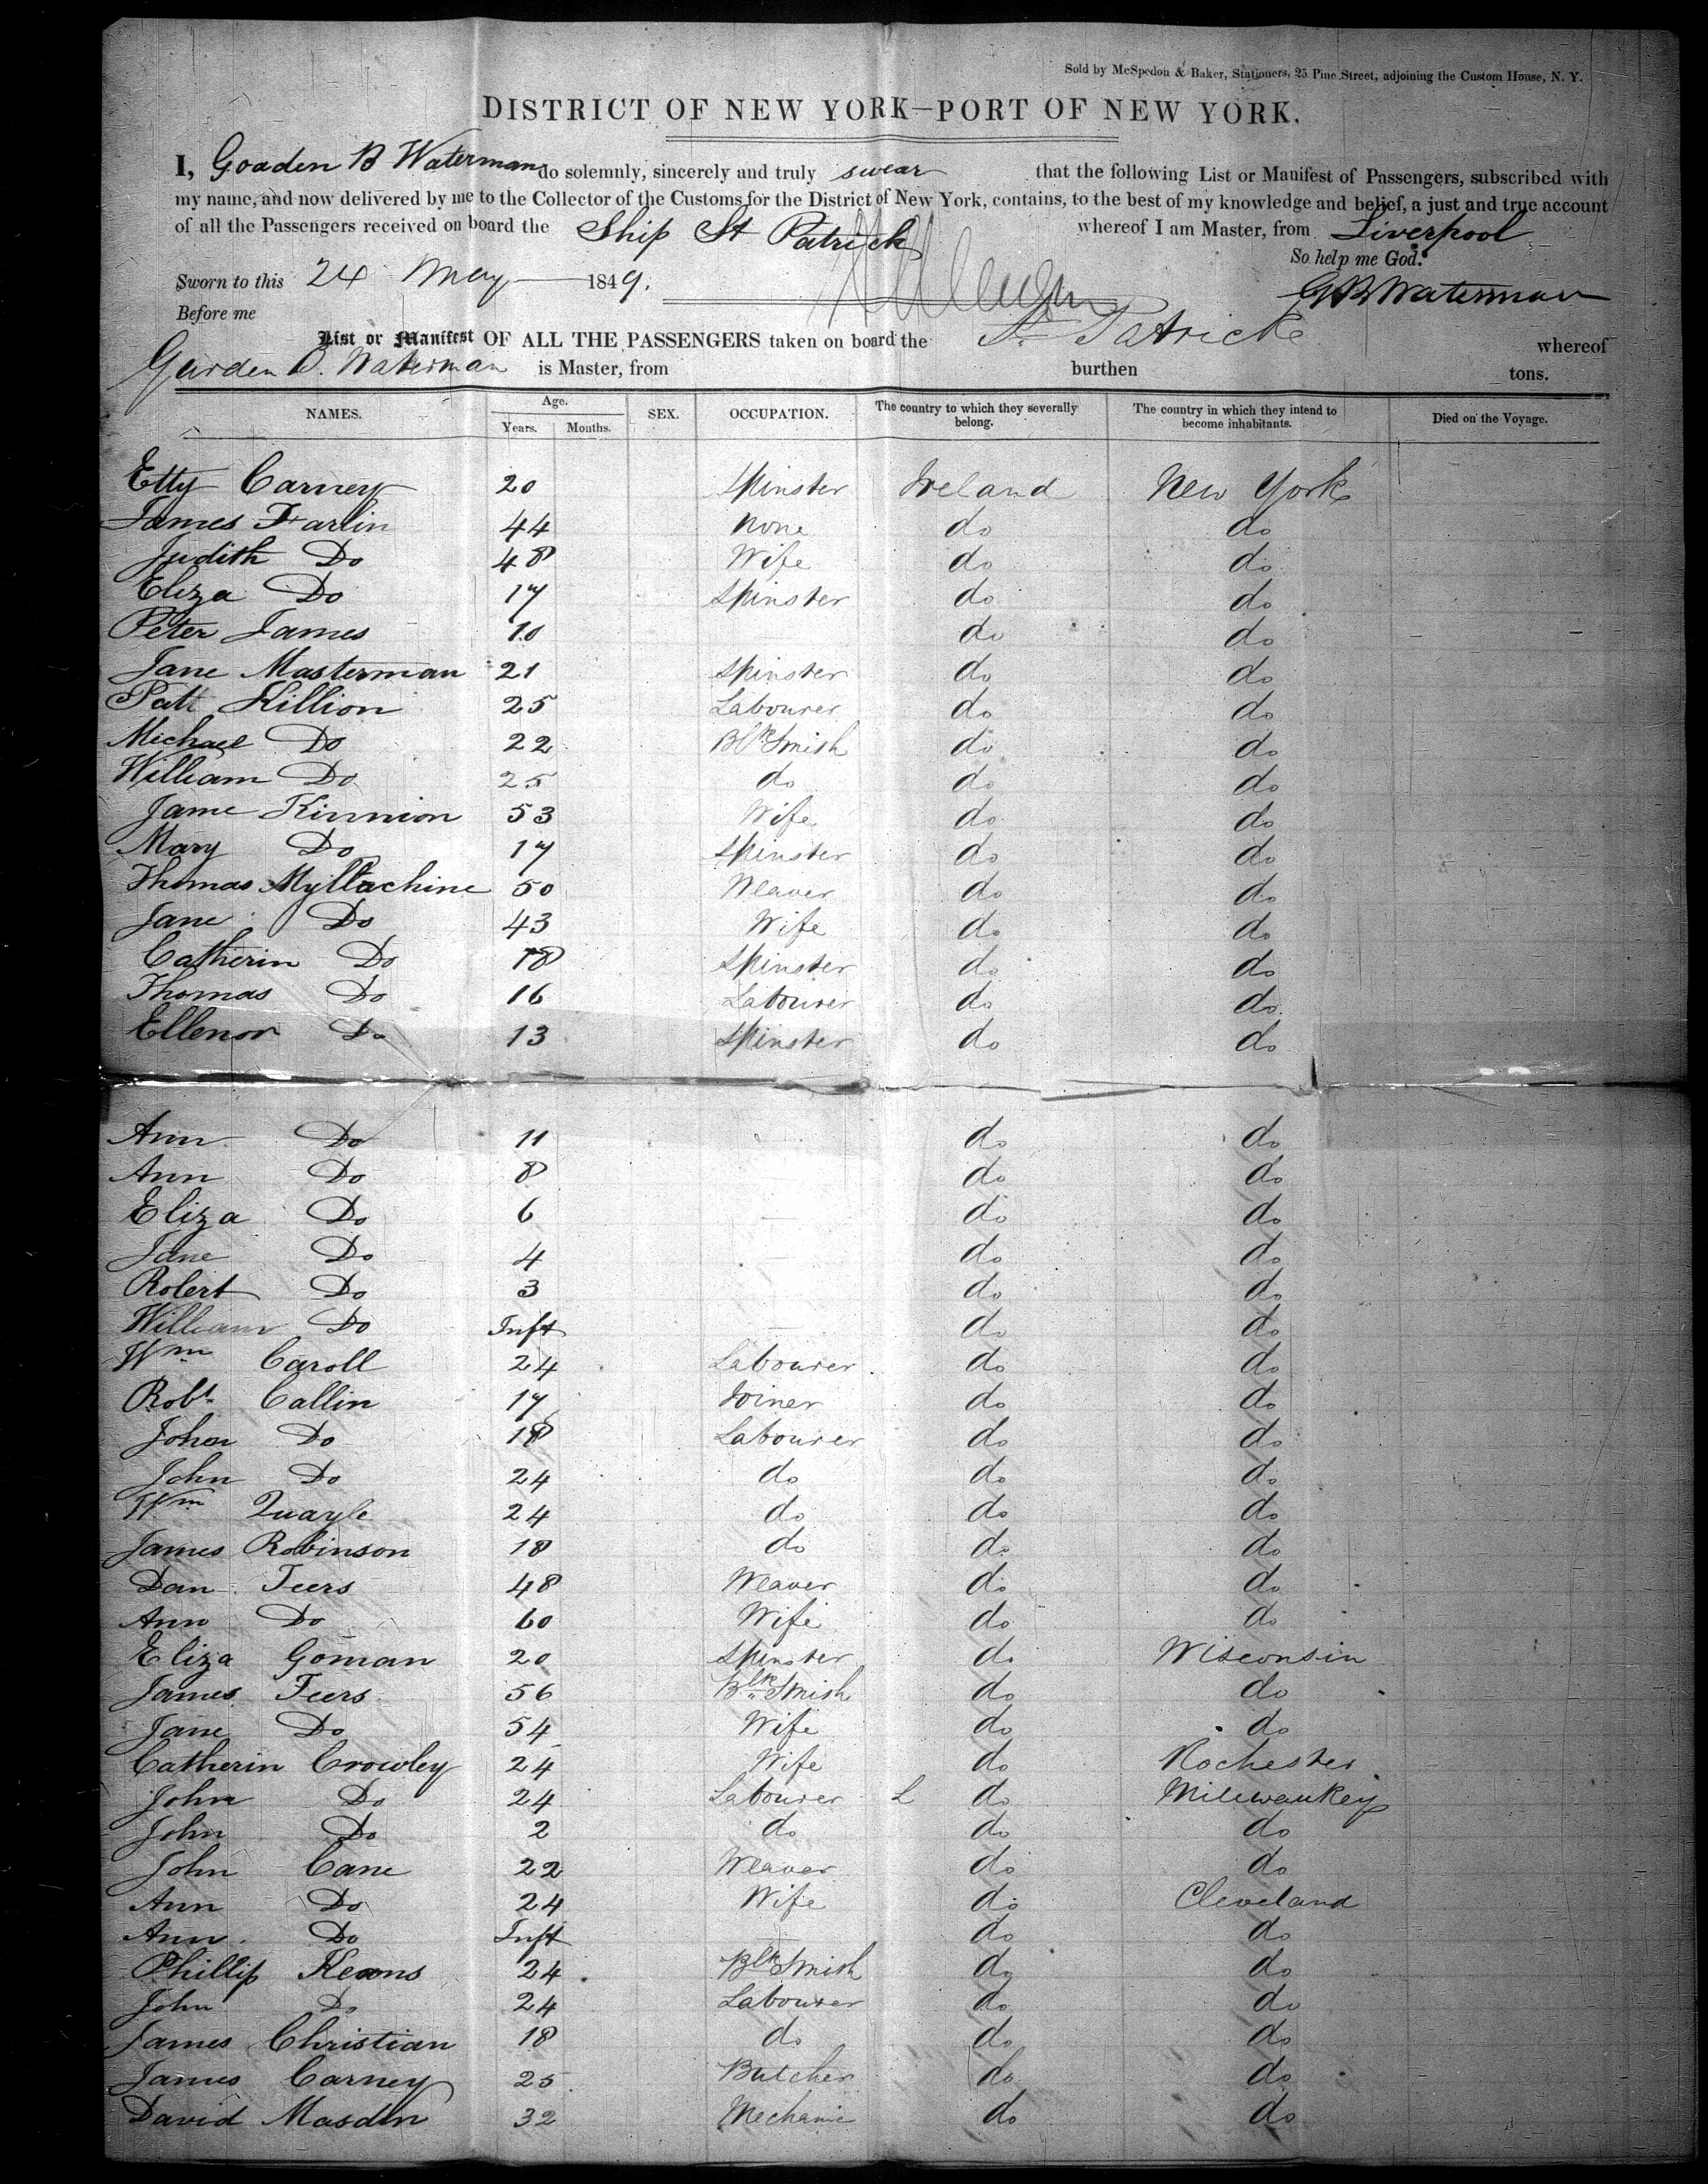 Sold by McSpedon & Baker, Stationers, 25 Pine Street, adjoining the Custom House, N. Y.
DISTRICT OF NEW YORK—PORT OF NEW YORK.
I, Goaden B Waterman do solemnly, sincerely and truly swear that the following List or Manifest of Passengers, subscribed with
my name, and now delivered by me to the Collector of the Customs for the District of New York, contains, to the best of my knowledge and belief, a just and true account
of all the Passengers received on board the Ship St Patrick whereof I am Master, from Liverpool
So help me God.
Sworn to this 24 May 1849. G B Waterman
Before me
List or Manifest OF ALL THE PASSENGERS taken on board the St. Patrick whereof
Gurden B. Waterman is Master, from burthen tons.
NAMES. Age. Years. Months. SEX. OCCUPATION. The country to which they severally belong. The country in which they intend to become inhabitants. Died on the Voyage.
Etty Carney 20 Spinster Ireland New York
James Farlin 44 None do do
Judith Do 48 Wife do do
Eliza Do 17 Spinster do do
Peter James 10 do do
Jane Masterman 21 Spinster do do
Patt Killion 25 Labourer do do
Michael Do 22 Blk Smish do do
William Do 25 do do do
Jame Kinnion 53 Wife do do
Mary Do 17 Spinster do do
Thomas Myltachine 50 Weaver do do
Jane Do 43 Wife do do
Catherin Do 18 Spinster do do
Thomas Do 16 Labourer do do
Ellenor Do 13 Spinster do do
Ann Do 11 do do
Ann Do 8 do do
Eliza Do 6 do do
Jane Do 4 do do
Robert Do 3 do do
William Do Inft do do
Wm Caroll 24 Labourer do do
Robt Callin 17 Joiner do do
John Do 18 Labourer do do
John Do 24 do do do
Wm Quayle 24 do do do
James Robinson 18 do do do
Dan Teers 48 Weaver do do
Ann Do 60 Wife do do
Eliza Goman 20 Spinster do Wisconsin
James Teers 56 Blk Smish do do
Jane Do 54 Wife do do
Catherin Crowley 24 Wife do Rochester
John Do 24 Labourer L do Milewaukey
John Do 2 do do do
John Cane 22 Weaver do do
Ann Do 24 Wife do Cleveland
Ann Do Inft do do
Phillip Keons 24 Blk Smish do do
John Do 24 Labourer do do
James Christian 18 do do do
James Carney 25 Butcher do do
David Masdin 32 Mechanic do do